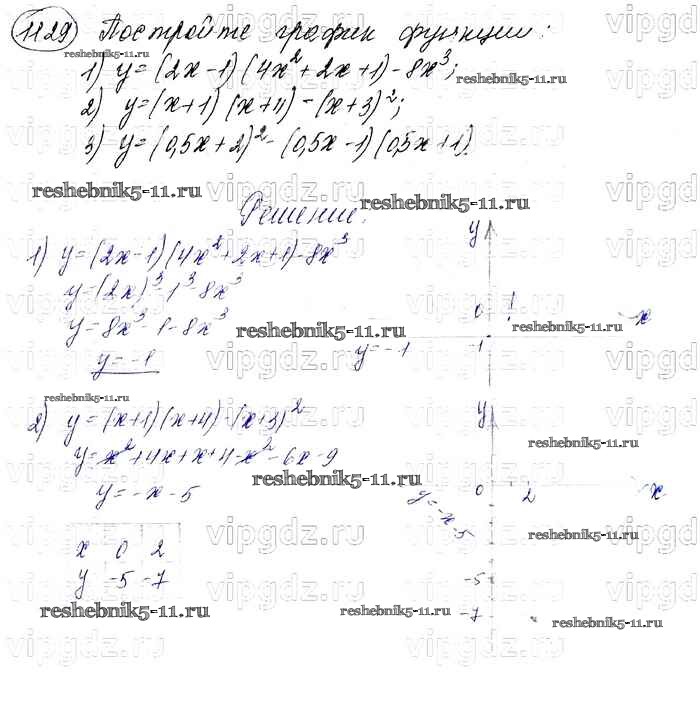 1129 Постройте график функции:
1) y=(2x-1)(4x²+2x+1)-8x³;
2) y=(x+1)(x+4)-(x+3)²;
3) y=(0,5x+2)²-(0,5x-1)(0,5x+1).
Решение.
1) y=(2x-1)(4x²+2x+1)-8x³
y=(2x)³-1³-8x³
y=8x³-1-8x³
y=-1
y
0 1 x
y=-1 -1
2) y=(x+1)(x+4)-(x+3)²
y=x²+4x+x+4-x²-6x-9
y=-x-5
x 0 2
y -5 -7
y
0 2 x
y=-x-5
-5
-7
reshebnik5-11.ru
reshebnik5-11.ru
reshebnik5-11.ru
reshebnik5-11.ru
reshebnik5-11.ru
reshebnik5-11.ru
reshebnik5-11.ru
reshebnik5-11.ru
reshebnik5-11.ru
reshebnik5-11.ru
reshebnik5-11.ru
reshebnik5-11.ru
reshebnik5-11.ru
vipgdz.ru